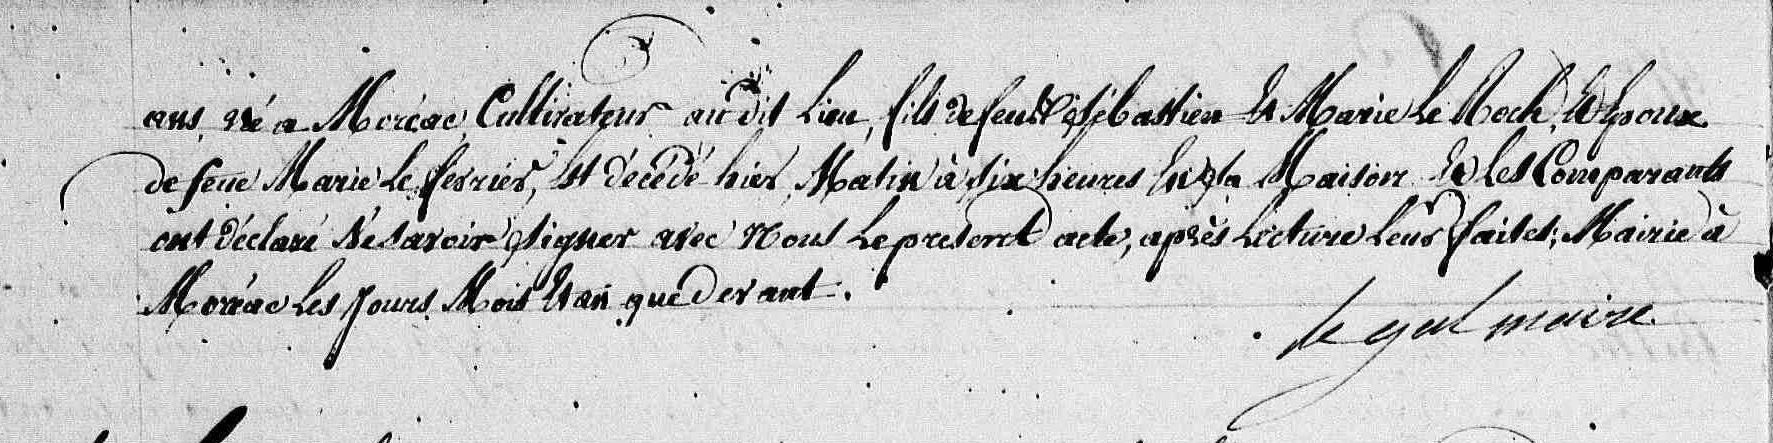 ans, né a Moréac, Cultivateur au dit Lieu, fils de feus Sébastien Et Marie Le Roch, Et Epoux
de feue Marie Le ferrier, Est décédé hier, Matin à six heures En sa Maison Et Les Comparants
ont déclaré Ne savoir signer avec Nous Le présent acte, après Lecture Leur faites; Mairie à
Moréac Les Jours, Mois Et an que devant.
le gal maire